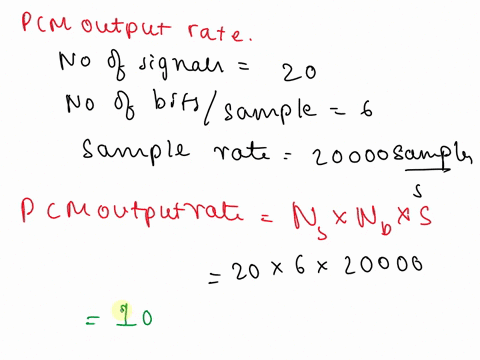 PCM output rate.
No of signals = 20
No of bits/sample = 6
Sample rate = 20000 samples
s
PCM output rate = Ns x Nb x S
= 20 x 6 x 20000
= 10